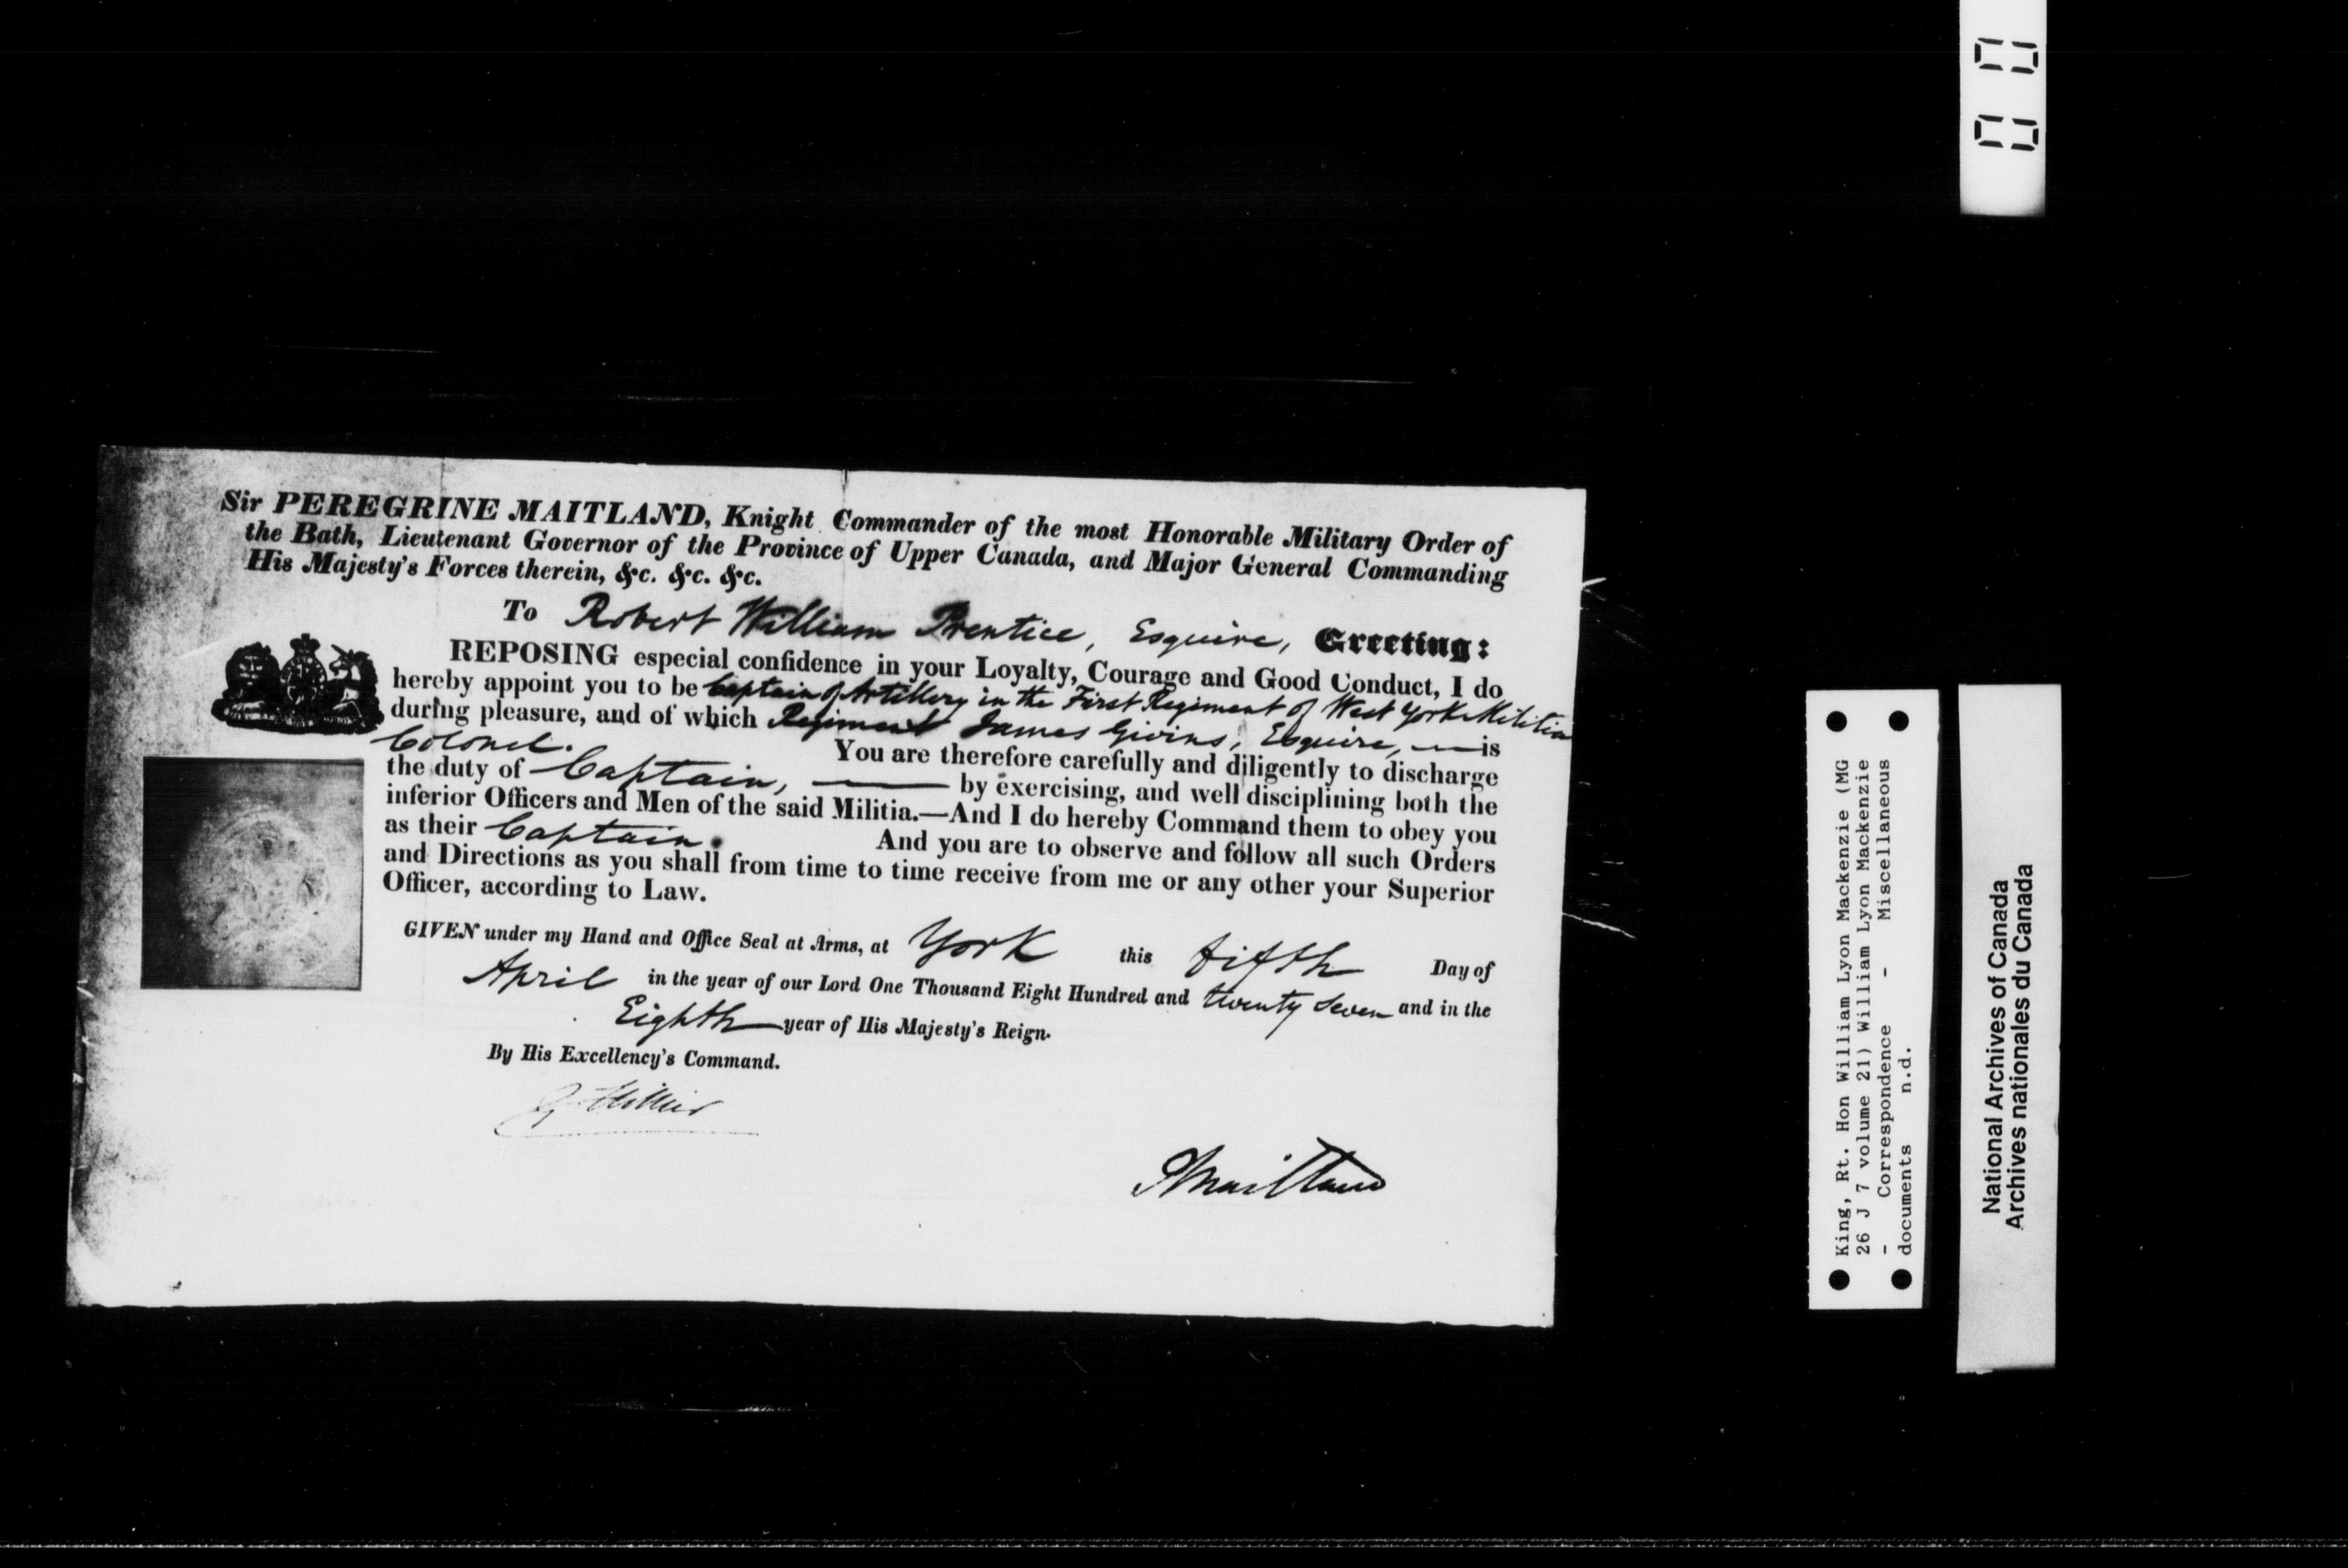 Sir PEREGRINE MAITLAND, Knight Commander of the most Honorable Military Order of
the Bath, Lieutenant Governor of the Province of Upper Canada, and Major General Commanding
His Majesty's Forces therein, &c. &c. &c.
To Robert William Prentice, Esquire, Greeting:
REPOSING especial confidence in your Loyalty, Courage and Good Conduct, I do
hereby appoint you to be Captain of Artillery in the First Regiment of West York Militia
during pleasure, and of which Regiment James Givins, Esquire, — is
Colonel. You are therefore carefully and diligently to discharge
the duty of Captain, — by exercising, and well disciplining both the
inferior Officers and Men of the said Militia.—And I do hereby Command them to obey you
as their Captain. And you are to observe and follow all such Orders
and Directions as you shall from time to time receive from me or any other your Superior
Officer, according to Law.
GIVEN under my Hand and Office Seal at Arms, at York this fifth Day of
April in the year of our Lord One Thousand Eight Hundred and twenty seven and in the
Eighth year of His Majesty's Reign.
By His Excellency's Command.
G. Hillier
P Maitland
King, Rt. Hon William Lyon Mackenzie (MG
26 J 7 volume 21) William Lyon Mackenzie
- Correspondence - Miscellaneous
documents n.d.
National Archives of Canada
Archives nationales du Canada